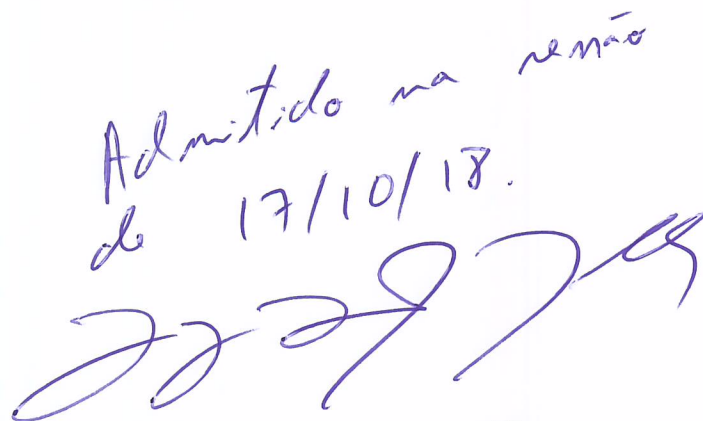 Admitido na sessão
de 17/10/18.